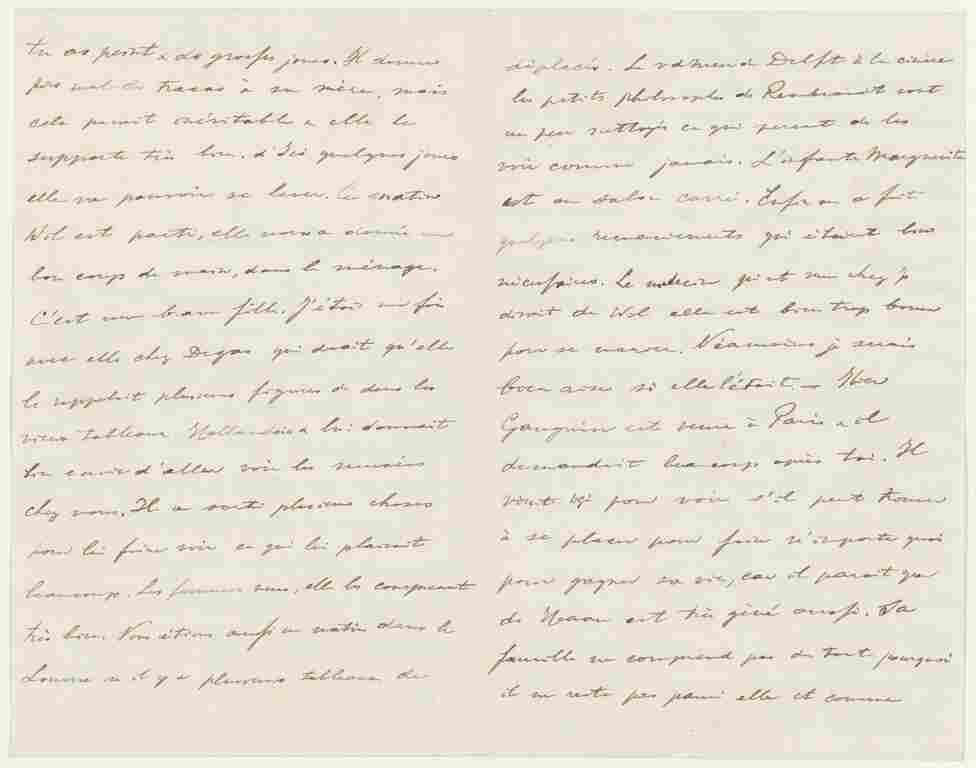 tu as peint a de grosses joues. Il donne
pas mal de tracas à sa mère, mais
cela parait inévitable & elle le
supporte très bien. d'Ici quelques jours
elle va pouvoir se lever. Ce matin
Wil est partie, elle nous a donné un
bon coup de main, dans le ménage.
C'est une brave fille. J'étais une fois
avec elle chez Degas qui disait qu'elle
le rappelait plusieurs figures de dans les
vieux tableaux Hollandais & lui donnait
bien envie d'aller voir les musées
chez nous. Il a sorti plusieurs choses
pour lui faire voir ce qui lui plaisait
beaucoup. Les femmes nues, elle les comprenait
très bien. Nous étions aussi un matin dans le
Louvre où il y a plusieurs tableaux de
déplacés. Le v.d. Meer de Delft à la
les petits philosophes de Rembrandt sont
un peu nettoyés ce qui permet de les
voir comme jamais. L'infante Marguerite
est au salon carré. Enfin on a fait
quelques remaniements qui étaient bien
nécessaires. Le médecin qui est venu chez n/s
disait de Wil elle est bien trop bonne
pour se marier. Néanmoins je serais
bien aise si elle l'était. – Hier
Gauguin est venu à Paris & il
demandait beaucoup après toi. Il
vient ici pour voir s'il peut trouver
à se placer pour faire n'importe quoi
pour gagner sa vie, car il parait que
de Haan est très gêné aussi. Sa
famille ne comprend pas du tout pourquoi
il ne reste pas parmi elle et comme